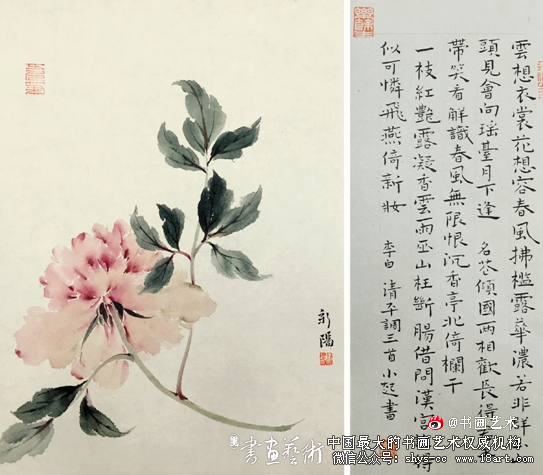 雲想衣裳花想容春風拂檻露華濃若非群
頭見會向瑤臺月下逢 名花傾國兩相歡長得
帶笑看解識春風無限恨沉香亭北倚欄干
一枝紅艷露凝香雲雨巫山枉斷腸借問漢宮
似可憐飛燕倚新妝 李白 清平調三首 小楚書
新陽
書畫藝術
@书画艺术
中国最大的书画艺术权威机构
微信公众号: shys-cc www.18art.com